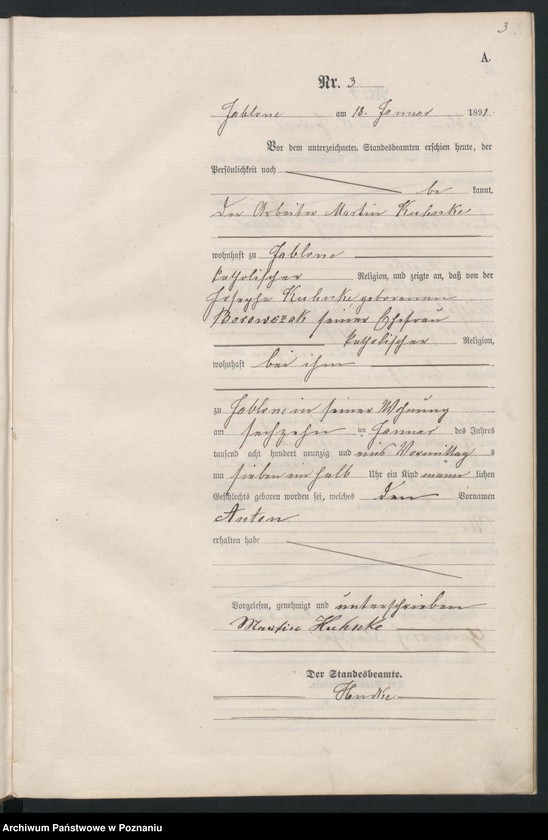 3
A.
Nr. 3
Jablone am 18. Januar 1891
Vor dem unterzeichneten Standesbeamten erschien heute, der
Persönlichkeit nach
be kannt,
der Arbeiter Martin Kuhnke
wohnhaft zu Jablone
katholischer Religion, und zeigte an, daß von der
Josepha Kuhnke geborenen
Borowczak seiner Ehefrau
katholischer Religion,
wohnhaft bei ihm
zu Jablone in seiner Wohnung
am sechzehn ten Januar des Jahres
tausend acht hundert neunzig und eins Vormittag s
um sieben ein halb Uhr ein Kind männ lichen
Geschlechts geboren worden sei, welches den Vornamen
Anton
erhalten habe
Vorgelesen, genehmigt und unterschrieben
Martin Kuhnke
Der Standesbeamte.
Archiwum Państwowe w Poznaniu